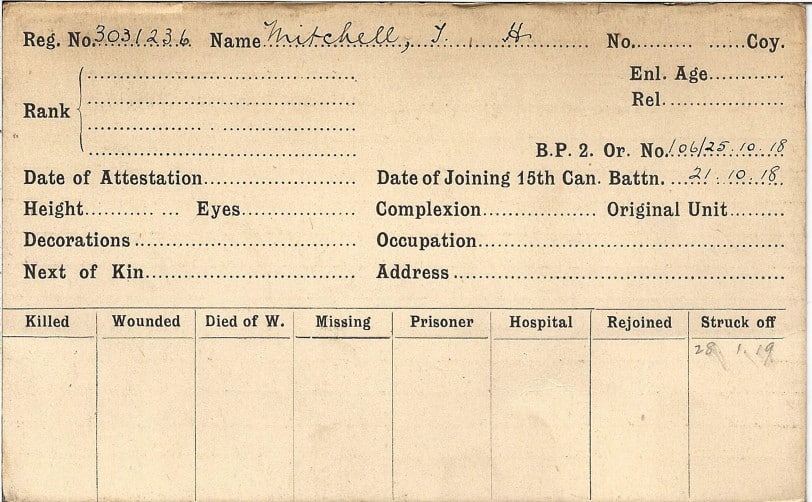 Reg. No. 3031236 Name Mitchell, T. H. No. Coy.
Enl. Age
Rel.
Rank
B.P. 2. Or. No. 106/25.10.18
Date of Attestation Date of Joining 15th Can. Battn. 21.10.18
Height Eyes Complexion Original Unit
Decorations Occupation
Next of Kin Address
Killed Wounded Died of W. Missing Prisoner Hospital Rejoined Struck off
28 1.19